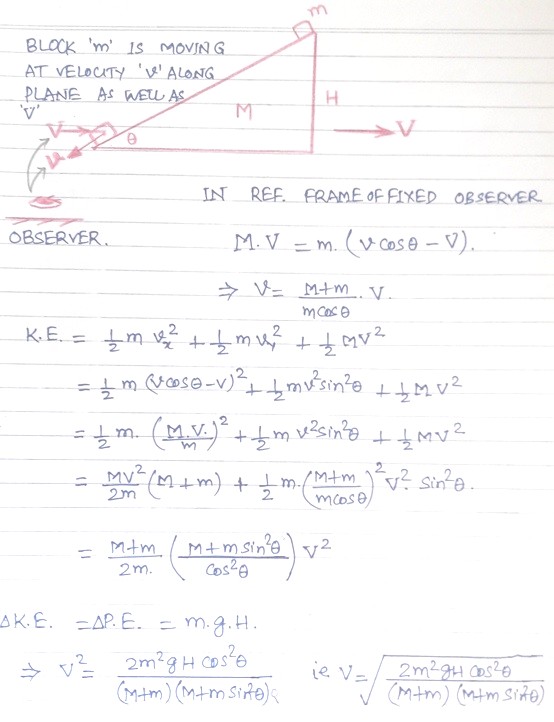 m
BLOCK 'm' IS MOVING
AT VELOCITY 'v' ALONG
PLANE AS WELL AS
'V'
M
H
V
θ
V
v
IN REF. FRAME OF FIXED OBSERVER
OBSERVER.
M.V = m.(v cosθ - V).
⇒ v = (M+m)/(m cosθ) . V.
K.E. = 1/2 m v_x^2 + 1/2 m v_y^2 + 1/2 MV^2
= 1/2 m (v cosθ - V)^2 + 1/2 m v^2 sin^2θ + 1/2 M V^2
= 1/2 m. (M.V./m)^2 + 1/2 m v^2 sin^2θ + 1/2 MV^2
= MV^2/2m (M+m) + 1/2 m. ((M+m)/(m cosθ))^2 V^2. sin^2θ.
= (M+m)/2m. ((M+m sin^2θ)/cos^2θ) V^2
ΔK.E. = ΔP.E. = m.g.H.
⇒ V^2 = 2m^2gH cos^2θ/((M+m)(M+m sin^2θ)) ie V = √(2m^2gH cos^2θ/((M+m)(M+m sin^2θ)))